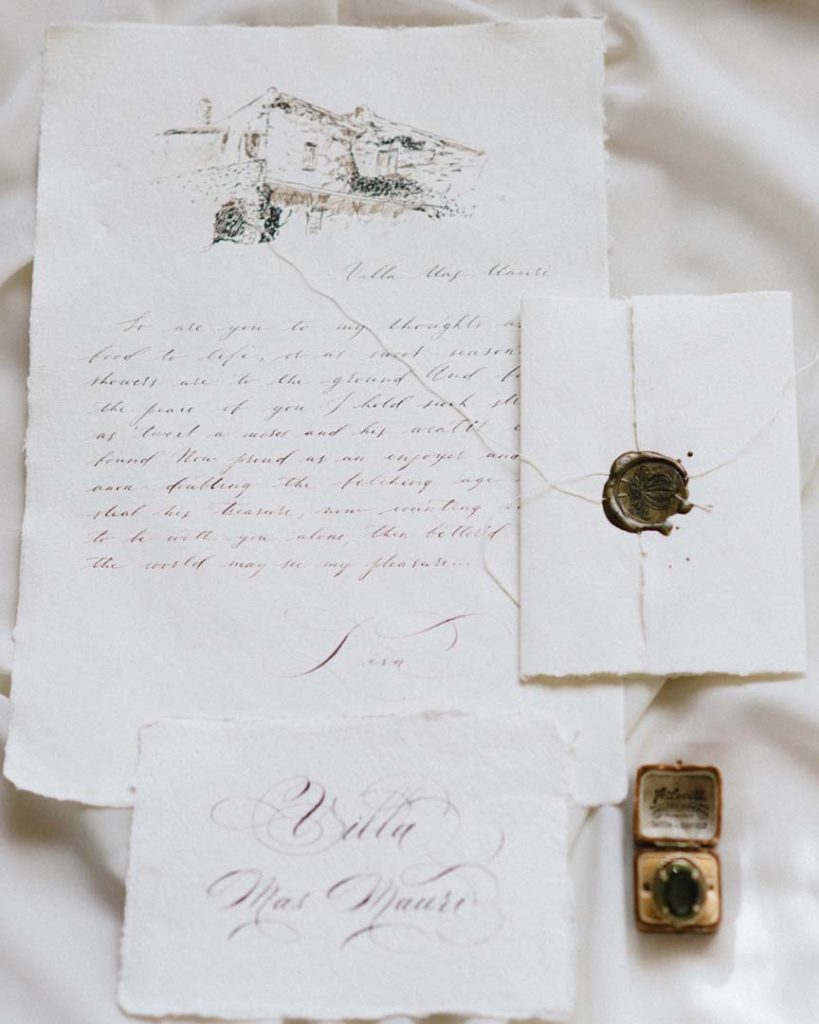 Villa Mas Mauri
So are you to my thoughts as
food to life, or as sweet season
showers are to the ground And fo
the peace of you I hold such str
as 'twixt a miser and his wealth
found Now proud as an enjoyer and
anon doubting the filching age
steal his treasure, now counting b
to be with you alone, then better'd
the world may see my pleasure...
Villa
Mas Mauri